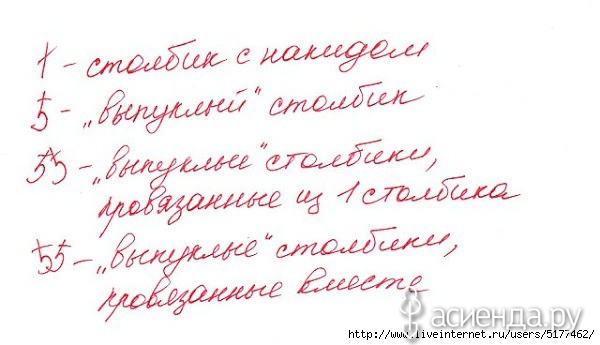 † - столбик с накидом
5 - „выпуклый“ столбик
55 - „выпуклые“ столбики,
провязанные из 1 столбика
55 - „выпуклые“ столбики,
провязанные вместе
асиенда.ру
http://www.liveinternet.ru/users/5177462/